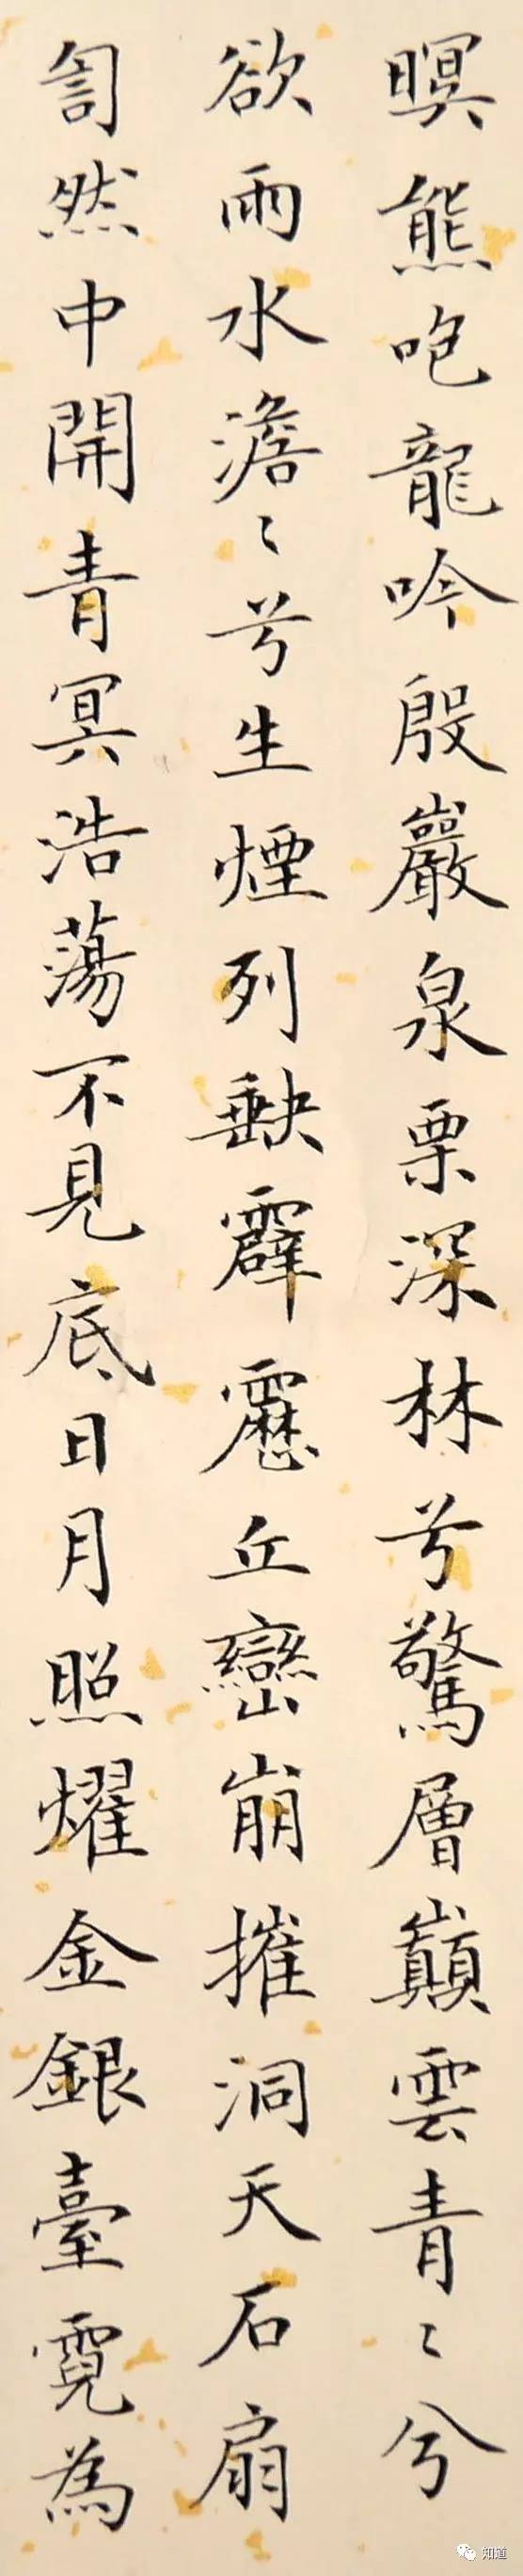 暝熊咆龍吟殷巖泉栗深林兮驚層巔雲青〻兮
欲雨水澹〻兮生煙列缺霹靂丘巒崩摧洞天石扇
訇然中開青冥浩蕩不見底日月照耀金銀臺霓為
知道